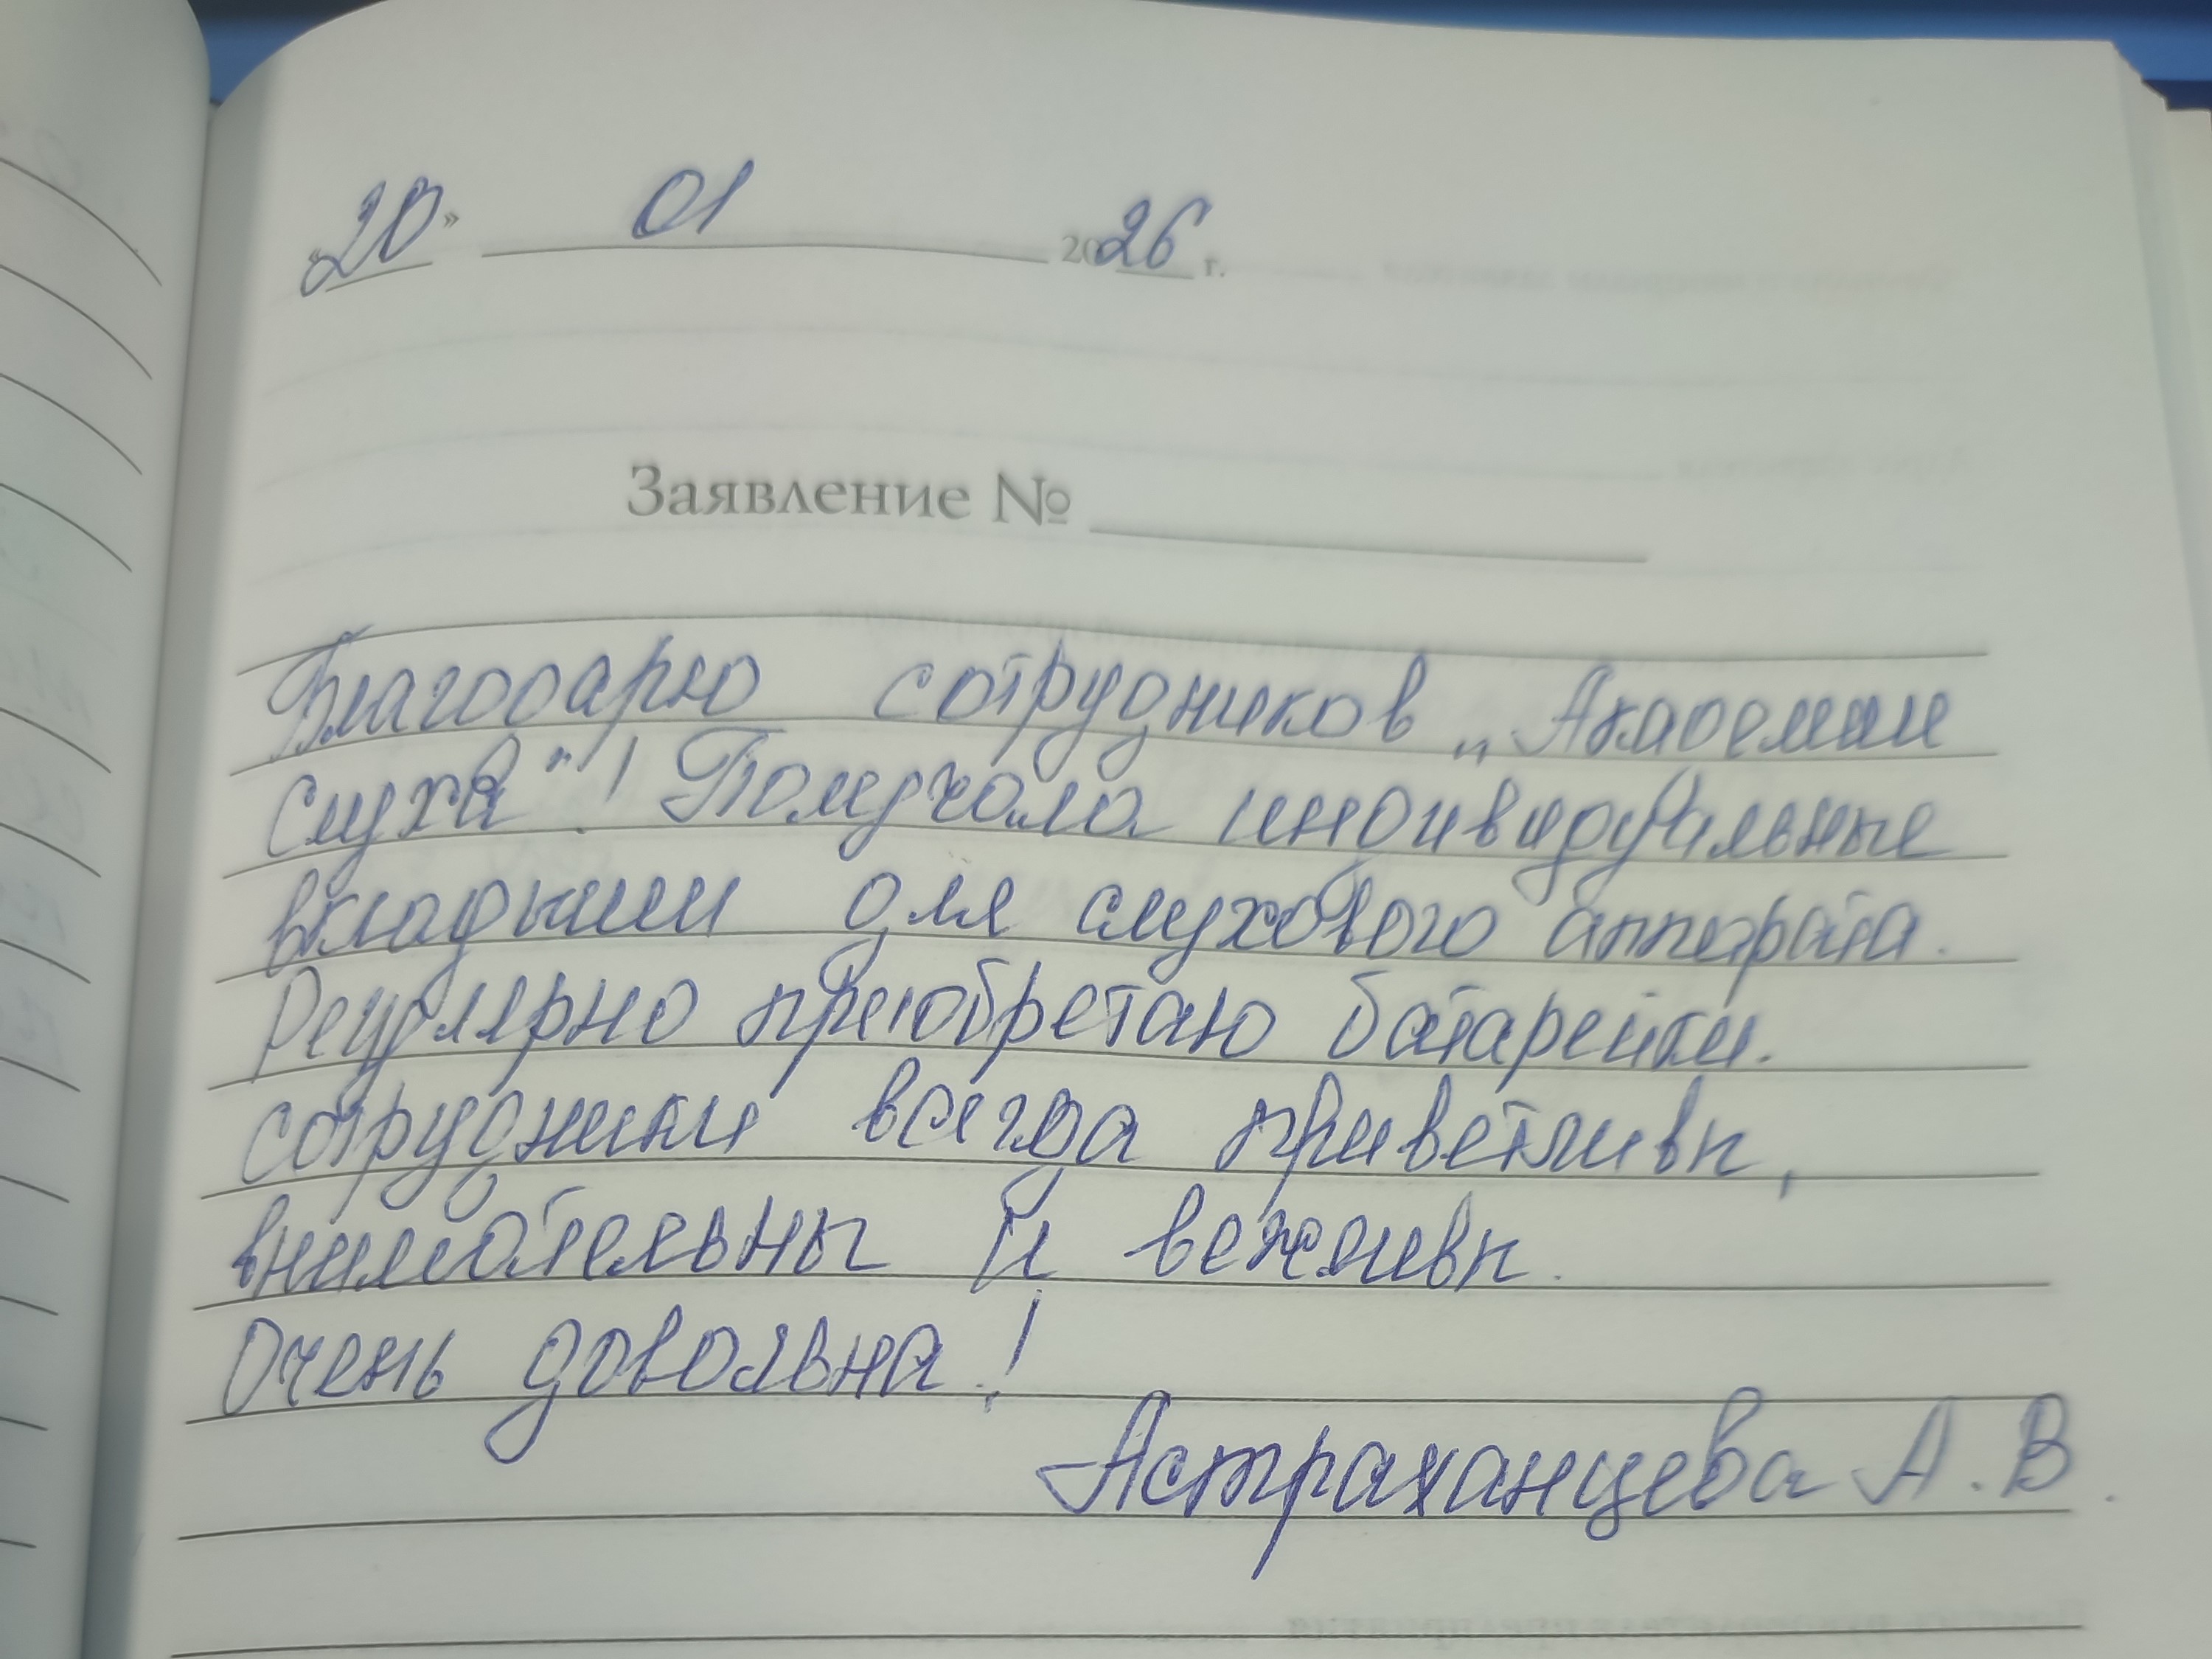 «20» 01 2026 г.
Заявление №
Благодарю сотрудников „Академии
слуха"! Получала индивидуальные
вкладыши для слухового аппарата.
Регулярно приобретаю батарейки.
сотрудники всегда приветливы,
внимательны и вежливы.
Очень довольна!
Астраханцева А.В.